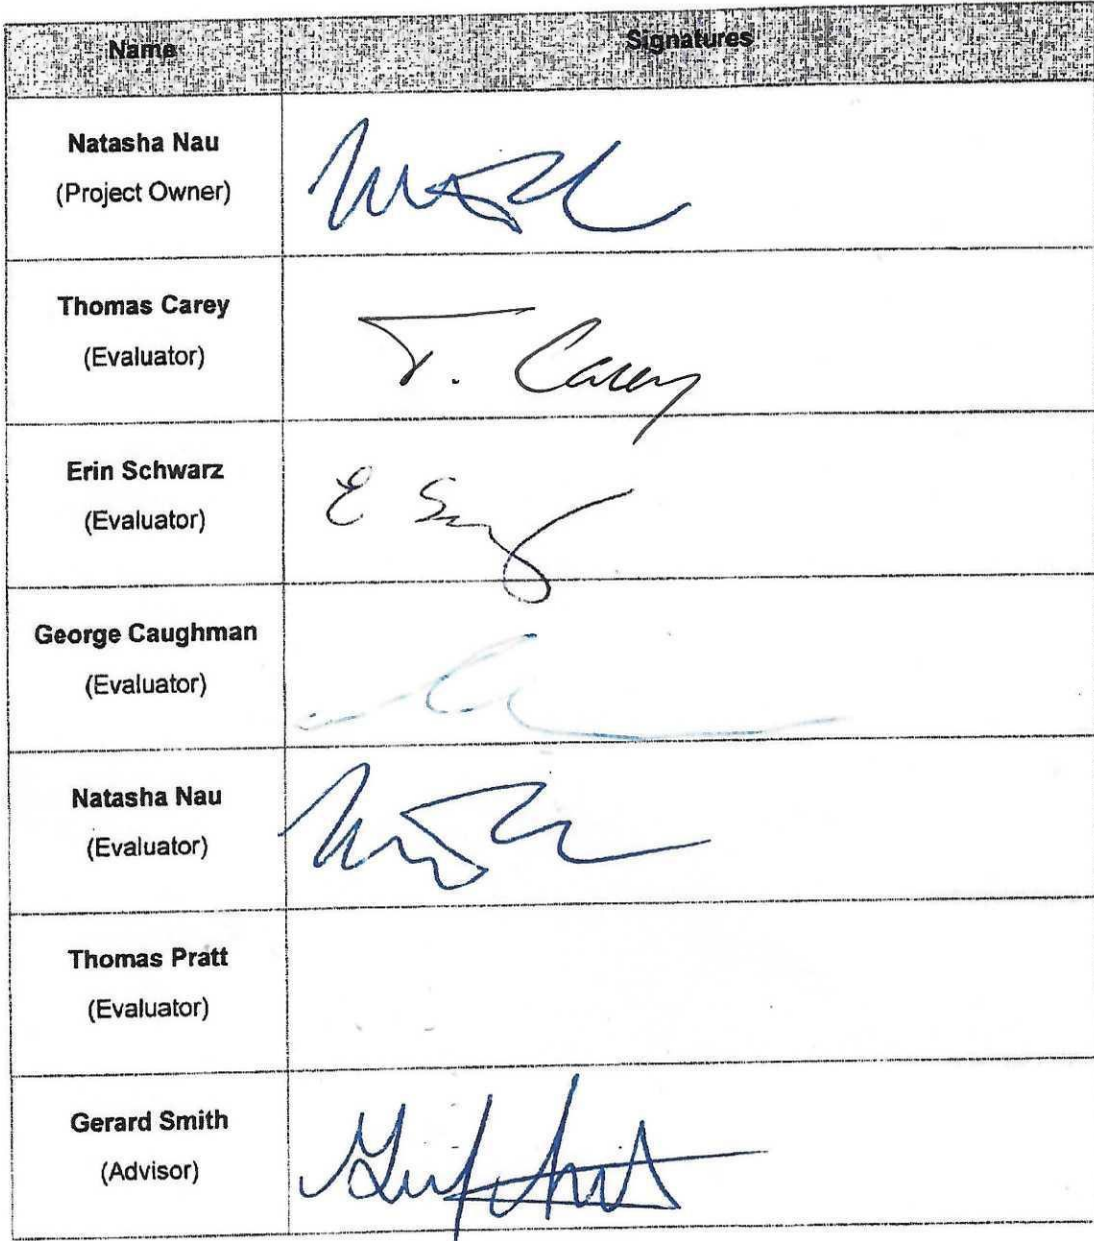 Name
Signatures
Natasha Nau
(Project Owner)
Thomas Carey
(Evaluator)
T. Carey
Erin Schwarz
(Evaluator)
George Caughman
(Evaluator)
Natasha Nau
(Evaluator)
Thomas Pratt
(Evaluator)
Gerard Smith
(Advisor)